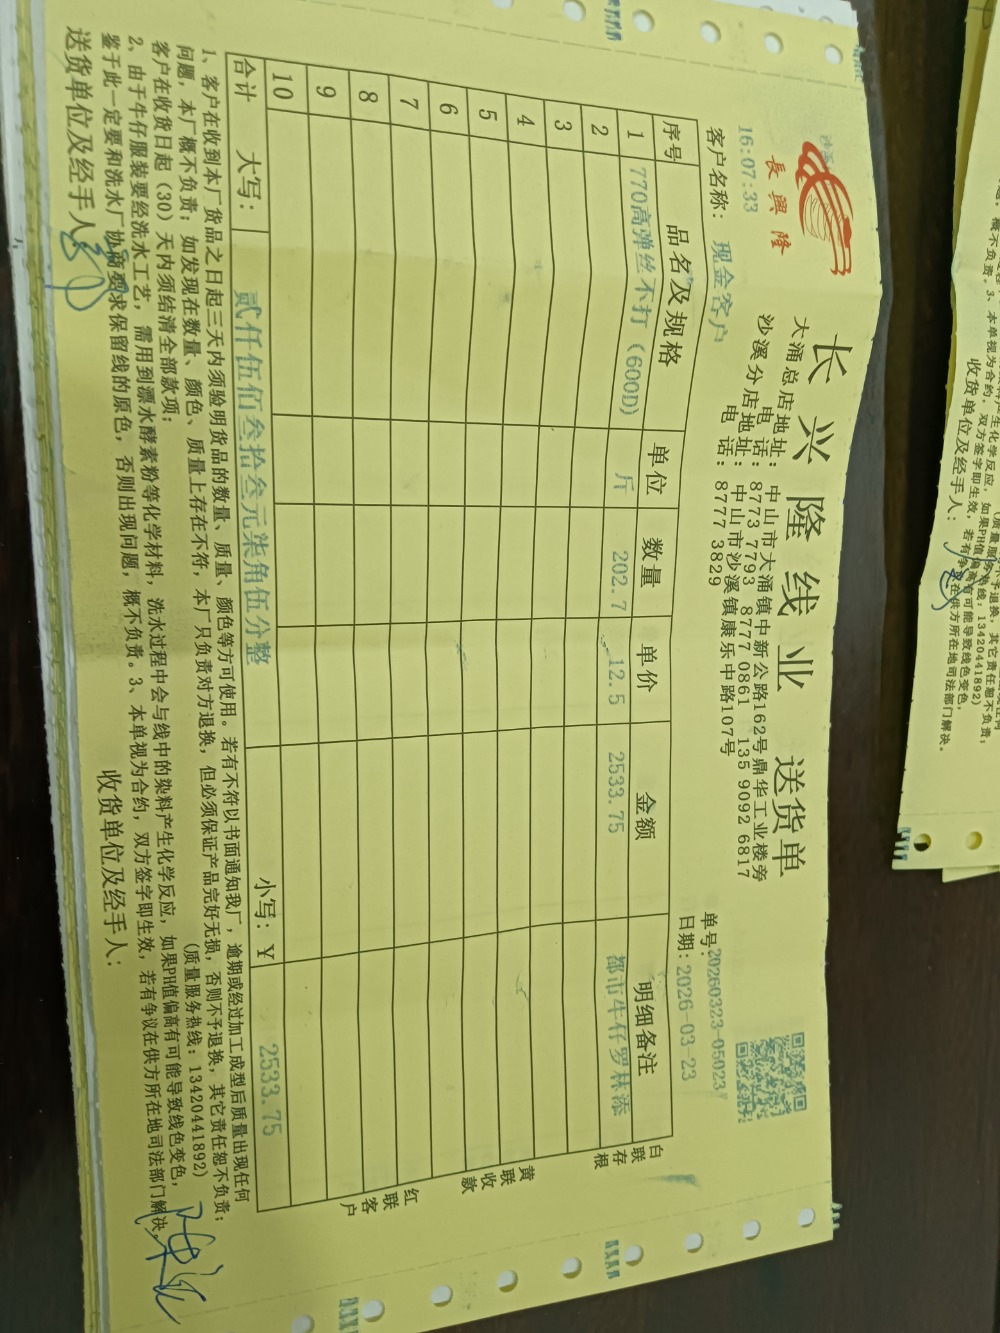 長興隆
长兴隆线业 送货单
大涌总店地址：中山市大涌镇中新公路162号鼎华工业楼旁
电 话：8773 7793 8777 0861 135 9092 6817
沙溪分店地址：中山市沙溪镇康乐中路107号
电 话：8777 3829
16:07:33
单号：20260323-05023
客户名称：现金客户 日期：2026-03-23
序号 品名及规格 单位 数量 单价 金额 明细备注
1 770高弹丝不打（600D) 斤 202.7 12.5 2533.75 都市牛仔罗林添
2
3
4
5
6
7
8
9
10
合计 大写：贰仟伍佰叁拾叁元柒角伍分整 小写：￥ 2533.75
白联存根
黄联收款
红联客户
1、客户在收到本厂货品之日起三天内须验明货品的数量、质量、颜色等方可使用。若有不符以书面通知我厂，逾期或经过加工成型后质量出现任何
问题，本厂概不负责；如发现在数量、颜色、质量上存在不符，本厂只负责对方退换，但必须保证产品完好无损，否则不予退换，其它责任恕不负责；
客户在收货日起（30）天内须结清全部款项； （质量服务热线：13420441892）
2、由于牛仔服装要经洗水工艺，需用到漂水酵素粉等化学材料，洗水过程中会与线中的染料产生化学反应，如果PH值偏高有可能导致线色变色，
鉴于此一定要和洗水厂协商要求保留线的原色，否则出现问题，概不负责。3、本单视为合约，双方签字即生效，若有争议在供方所在地司法部门解决。
送货单位及经手人： 收货单位及经手人：
不予退换，其它责任恕不负责；
（质量服务热线：13420441892）
产生化学反应，如果PH值偏高有可能导致线色变色，
概不负责。3、本单视为合约，双方签字即生效，若有争议在供方所在地司法部门解决。
收货单位及经手人：